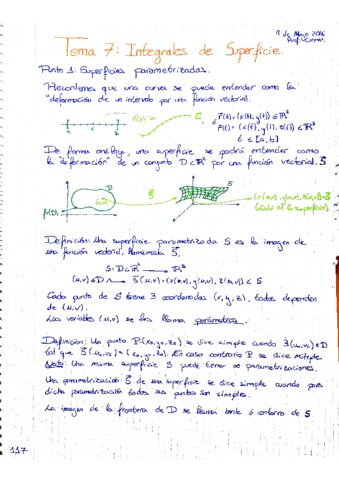 9 de Mayo 2016
Tema 7: Integrales de Superficie.
Punto 1: Superficies parametrizadas.
Recordemos que una curva se puede entender como la
"deformación de un intervalo por una función vectorial.
a b r(t) C r(t) = (x(t), y(t)) ∈ R²
r(t) = (x(t), y(t), z(t)) ∈ R³
t ∈ [a, b]
De forma análoga, una superficie se podrá entender como
la "deformación" de un conjunto D⊂R² por una función vectorial S
(u,v) S S (x(u,v), y(u,v), z(u,v))
Definición: Una superficie parametrizada S es la imagen de
una función vectorial, llamémosla S,
S: D⊂R² → R³
(u,v)∈D → S(u,v) = (x(u,v), y(u,v), z(u,v)) ∈ S
Cada punto de S tiene 3 coordenadas (x, y, z), todas dependen
de (u,v).
Las variables (u,v) se les llama parámetros.
Definición: Un punto P(x₀, y₀, z₀) se dice simple cuando ∃(u₀,v₀)∈D
tal que S(u₀,v₀) = (x₀, y₀, z₀). En caso contrario P se dice múltiple.
Nota: Una misma superficie S puede tener ∞ parametrizaciones.
Una parametrización S de una superficie se dice simple cuando para
dicha parametrización todos sus puntos son simples.
La imagen de la frontera de D se llama borde ó contorno de S